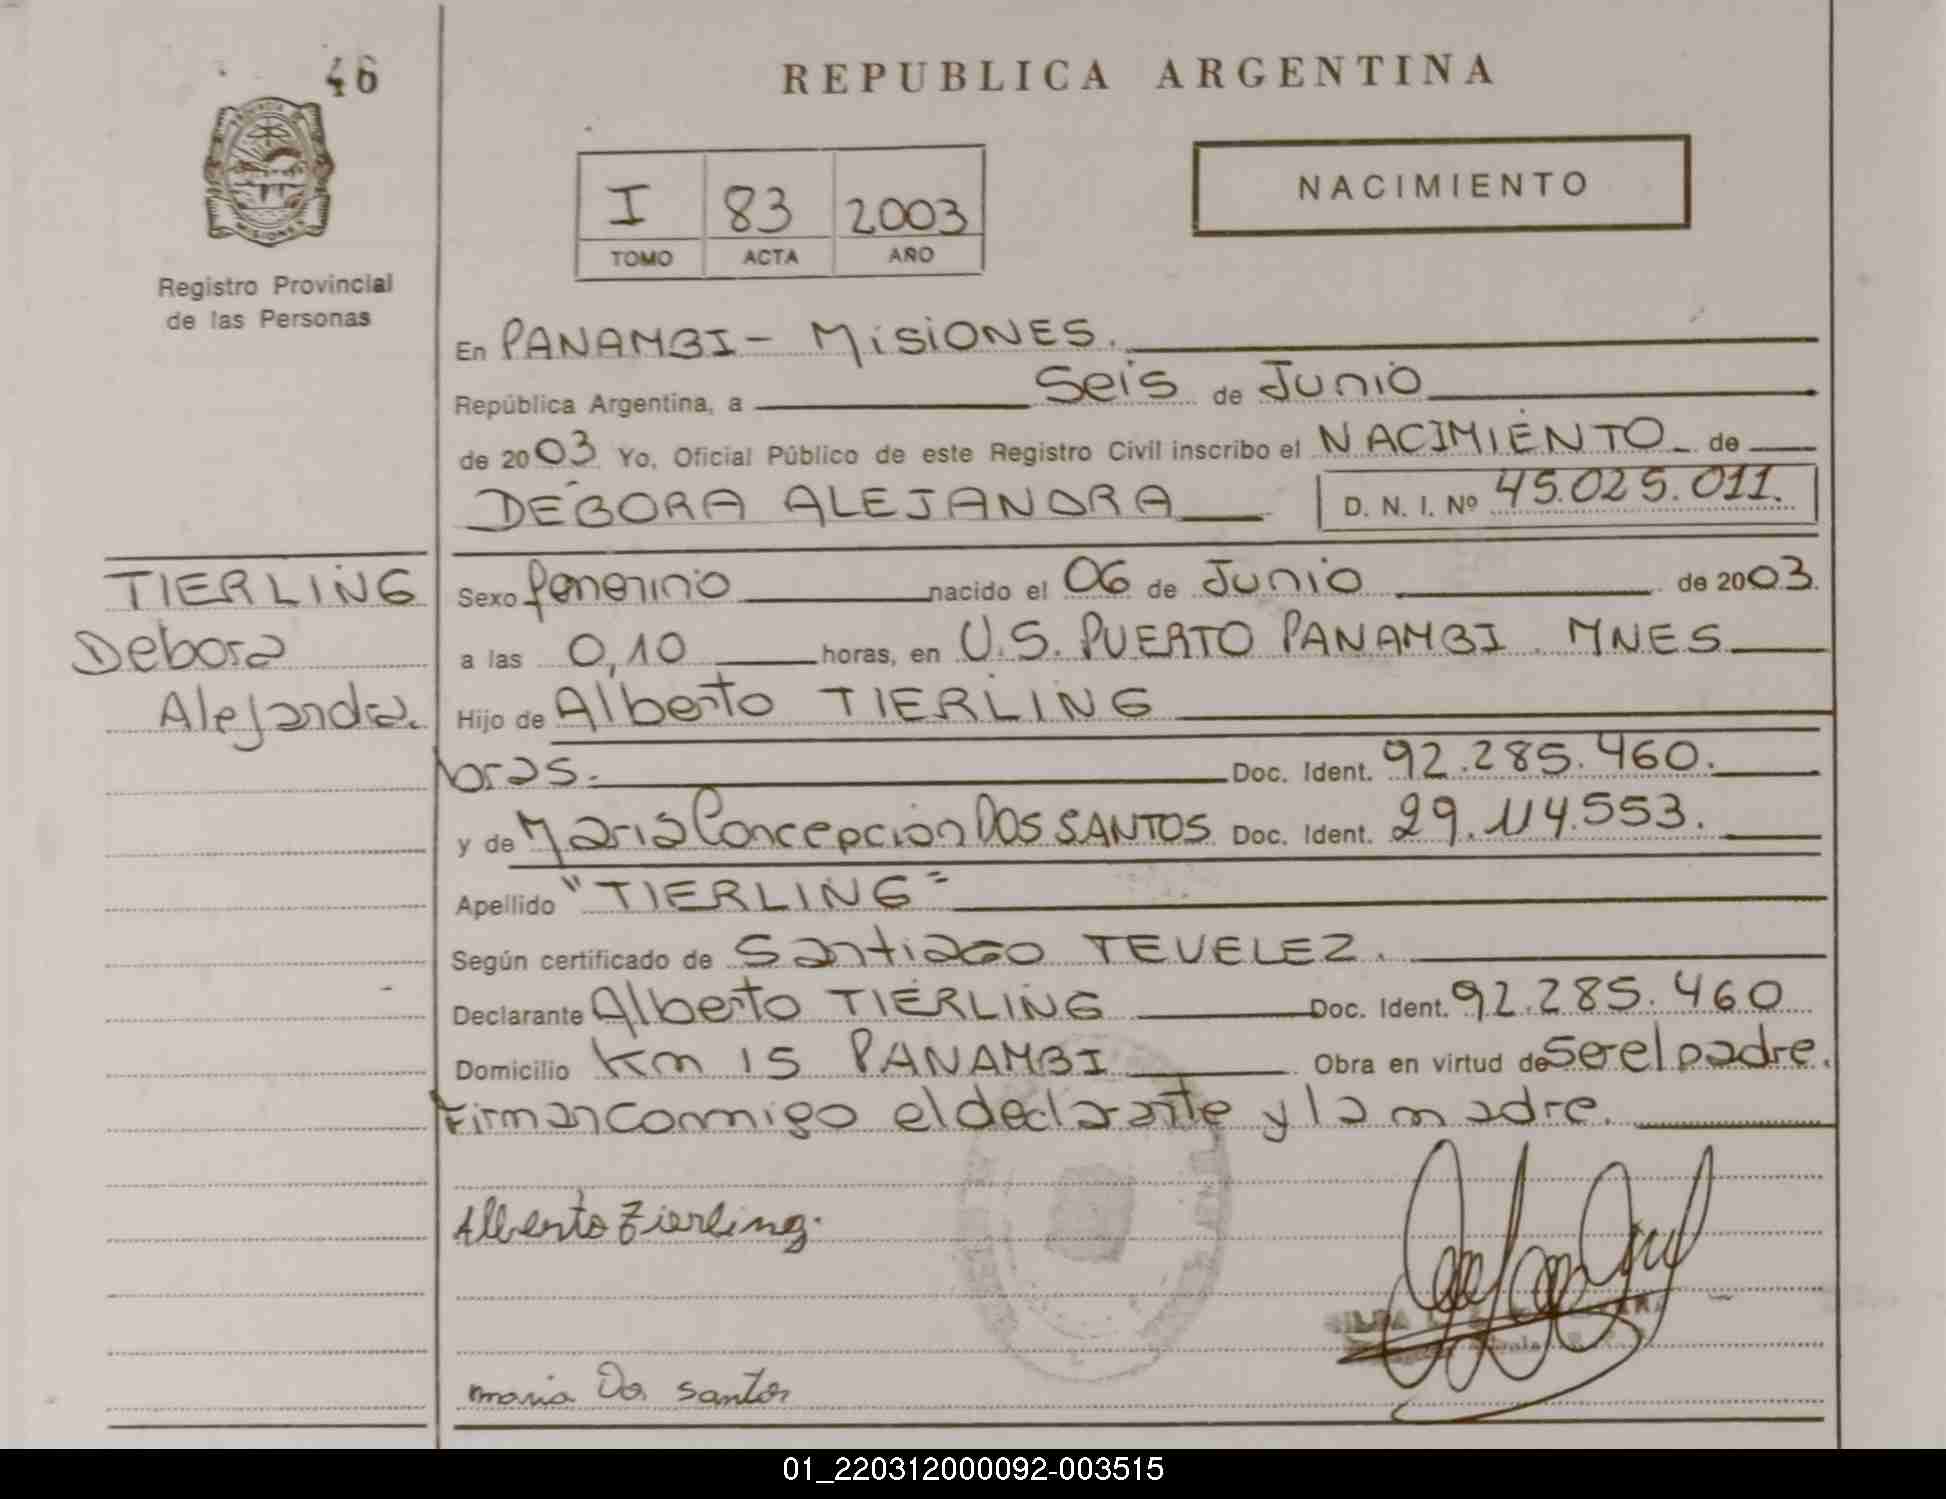 46
REPUBLICA ARGENTINA
PROVINCIA
MISIONES
Registro Provincial
de las Personas
I 83 2003
TOMO ACTA AÑO
NACIMIENTO
En PANAMBI - MiSiONES.
República Argentina, a Seis de Junio
de 2003 Yo, Oficial Público de este Registro Civil inscribo el NACIMIENTO de
DÉBORA ALEJANDRA D. N. I. Nº 45.025.011.
TIERLING
Debora
Alejandra.
Sexo femenino nacido el 06 de Junio de 2003.
a las 0,10 horas, en U.S. PUERTO PANAMBI. MNES
Hijo de Alberto TIERLING
Doc. Ident. 92.285.460.
y de Maria Concepción DOS SANTOS Doc. Ident. 29.114.553.
Apellido "TIERLING"
Según certificado de Santiago TEVELEZ.
Declarante Alberto TIERLING Doc. Ident. 92.285.460
Domicilio Km 15 PANAMBI Obra en virtud de Ser el padre.
Firman conmigo el declarante y la madre.
Alberto Tierling.
maria Dos santos
01_220312000092-003515